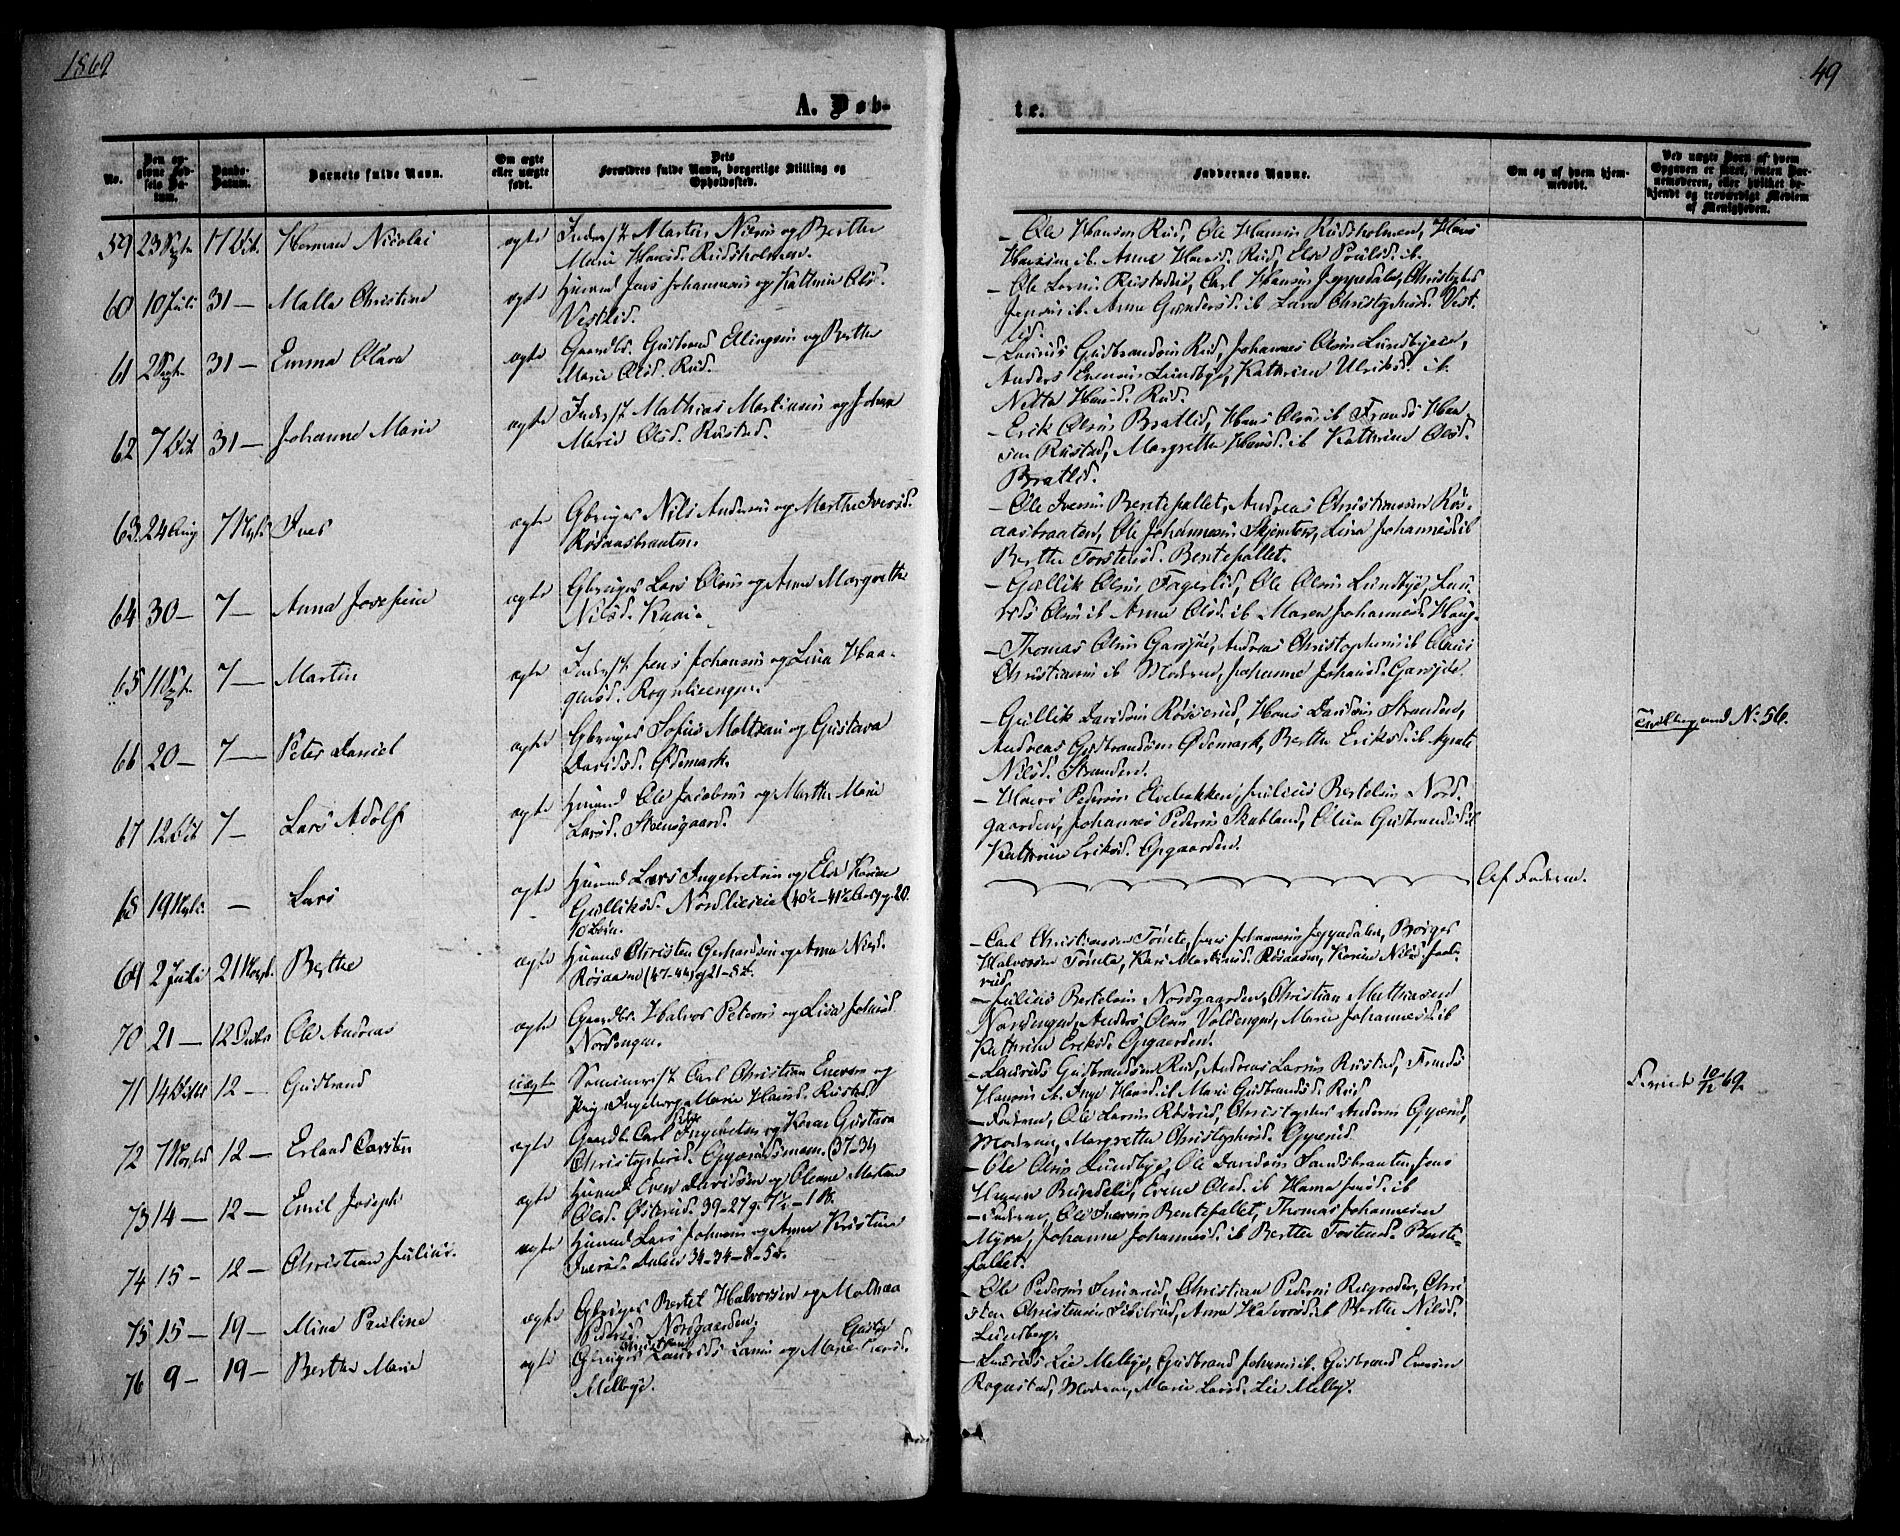 1869
49
A. Døb-
te.
No.
Den op-
givne Fød-
sels Da-
tum.
Daabs-
Datum.
Barnets fulde Navn.
Om ægte
eller uægte
født.
Dets
Forældres fulde Navn, borgerlige Stilling og
Opholdssted.
Faddernes Navne.
Om og af hvem hjem-
medøbt.
Ved uægte Børn af hvem
Opgaven er skeet, enten Bar-
nemoderen, eller hvilket be-
kjendt og troværdigt Medlem
af Menigheden.
59 23 Septr. 17 Oct. Herman Nicolai ægte Inderst Martin Nilsen og Berthe
Marie Hansd. Rudsholmen.
- Ole Hansen Rud, Ole Hansen Rudsholmen, Hans
Hansen ib. Anne Hansd. Rud, Else Pauls. ib.
60 10 Juli 31 - Malla Christine ægte Huusmd Jens Johannesen og Kathrine Olsd.
Vestlid.
- Ole Larsen Rustadlid, Carl Hansen Jeppedalen, Christopher
Jensen ib. Anne Gundersd. ib Lara Christophersd. Vest-
lid.
61 2 Septr. 31 - Emma Olava ægte Gaardbr. Gudbrand Ellingsen og Berthe
Marie Olsd. Rud.
- Laurids Gudbrandsen Rud, Johannes Olsen Lundbyeie,
Anders Evensen Lundbye, Kathrine Ulriksd. ib
Netta Hansd. Rud.
62 7 Oct. 31 - Johanne Marie ægte Inderst Mathias Martinsen og Johanne
Marie Olsd. Rustad.
- Erik Olsen Bratlid, Hans Olsen ib Frands Han-
sen Rustad, Margrethe Hansd. ib Kathrine Olsd.
Bratlid.
63 24 Aug 7 Novbr. Iver ægte Gbruger Nils Andersen og Marthe Iversd.
Røsaasbraaten.
- Ole Iversen Bentefallet, Andreas Christiansen Røs-
aasbraaten, Ole Johannesen Skjenken, Lina Johannesd. ib
Berthe Torstensd. Bentefallet.
64 30 - 7 - Anna Josefine ægte Gbruger Lars Olsen og Anne Margrethe
Nilsd. Haug.
- Gullik Olsen Fagerlid, Ole Olsen Lundbye, Lau-
rids Olsen ib Anne Olsd. ib Maren Johannesd. Haug.
65 11 Septr. 7 - Martin ægte Inderst Jens Johansen og Lina Haa-
gensd. Rognlieengen.
- Thomas Olsen Garsjøe, Andreas Christophersen ib Olaus
Christiansen ib Moderen, Johanne Johansd. Garsjøe.
66 20 - 7 - Peter Daniel ægte Gbruger Sofus Moltzau og Gustava
Davidsd. Ødemark.
- Gullik Davidsen Røsserud, Hans Davidsen Stranden,
Andreas Gudbrandsen Ødemark, Berthe Eriksd. ib Agnethe
Nilsd. Stranden.
Tvilling med No 56.
67 12 Oct 7 - Lars Adolf ægte Huusmd Ole Jacobsen og Marthe Marie
Larsd. Steensgaard.
- Hans Pedersen Elvebakken, Julius Bertelsen Nord-
gaarden, Johannes Pedersen Skatland, Olea Gudbrandsd. ib
Kathrine Eriksd. Opgaarden.
68 19 Novbr. - Lars ægte Huusmd Lars Ingebretsen og Else Karine
Gulliksd. Nordlieeie (40½ - 41½ g. 20.
10 Børn.
Af Faderen.
69 2 Juli 21 Novbr. Berthe ægte Huusmd Christen Gerhardsen og Anne Nilsd.
Røsaasen (47-44) g 21 - 5te.
- Carl Christiansen Tømte, Jens Johannesen Jeppedalen, Børger
Halvorsen Tømte, Kari Martinsd. Røsaasen, Karine Nilsd.
rud.
70 21 - 12 Decbr. Ole Andreas ægte Gaardbr. Halvor Petersen og Lisa Johnsd.
Nordengen.
- Julius Bertelsen Nordgaarden, Christian Mathiasen
Nordengen, Anders Olsen Voldengen, Marie Johannesd. ib
Kathrine Eriksd. Opgaarden.
71 14 Octbr 12 - Gudbrand uægte Seminarist Carl Christian Enersen og
Pige Ingeborg Marie Hansd. Rustad.
- Laurids Gudbrandsen Rud, Andreas Larsen Rustad, Frands
Hansen ib. Inge Hansd. ib Mari Gudbrandsd. Rud.
10/12 69.
72 7 Novbr 12 - Erland Carsten ægte Gaardb. Carl Ingebretsen og Karen Gustava
Christophersd. Gyperudsmoen. (37-34)
- Faderen, Ole Larsen Røsrud, Christopher Andersen Gyperud,
Moderen, Margrethe Christophersd. Gyperud.
73 14 - 12 - Emil Joseph ægte Huusmd Even Davidsen og Oleane Martea
Olsd. Østerud. 39 - 27 g. 7½ - 1 B.
- Ole Olsen Lundbye, Ole Davidsen Sandsbraaten, Jens
Hansen Bundelid, Evine Olsd. ib Hanna Jensd. ib
74 15 - 12 - Christian Julius. ægte Huusmd Lars Johansen og Anne Kristine
Iversd. Dalen 34-34-8-5te.
- Faderen, Ole Iversen Bentefallet, Thomas Johannesen
Myra, Johanne Johannesd. ib Berthe Torstensd. Bente-
fallet.
75 15 - 19 - Mina Pauline ægte Gbruger Bertel Halvorsen og Mathea
Pedersd. Nordgaarden.
- Ole Pedersen Semerud, Christian Pedersen Rugroden, Chri-
sten Christensen Sibilrud, Anne Halvorsd. ib Berthe Nilsd.
Lundberg.
76 9 - 19 - Berthe Marie ægte Gbruger Laurids Larsen og Marie Larsd.
Melbye.
- Laurids Lie Melbye, Gudbrand Johansen ib. Gudbrand Evensen
Rognstad, Moderen, Marie Larsd. Lie Melbye.